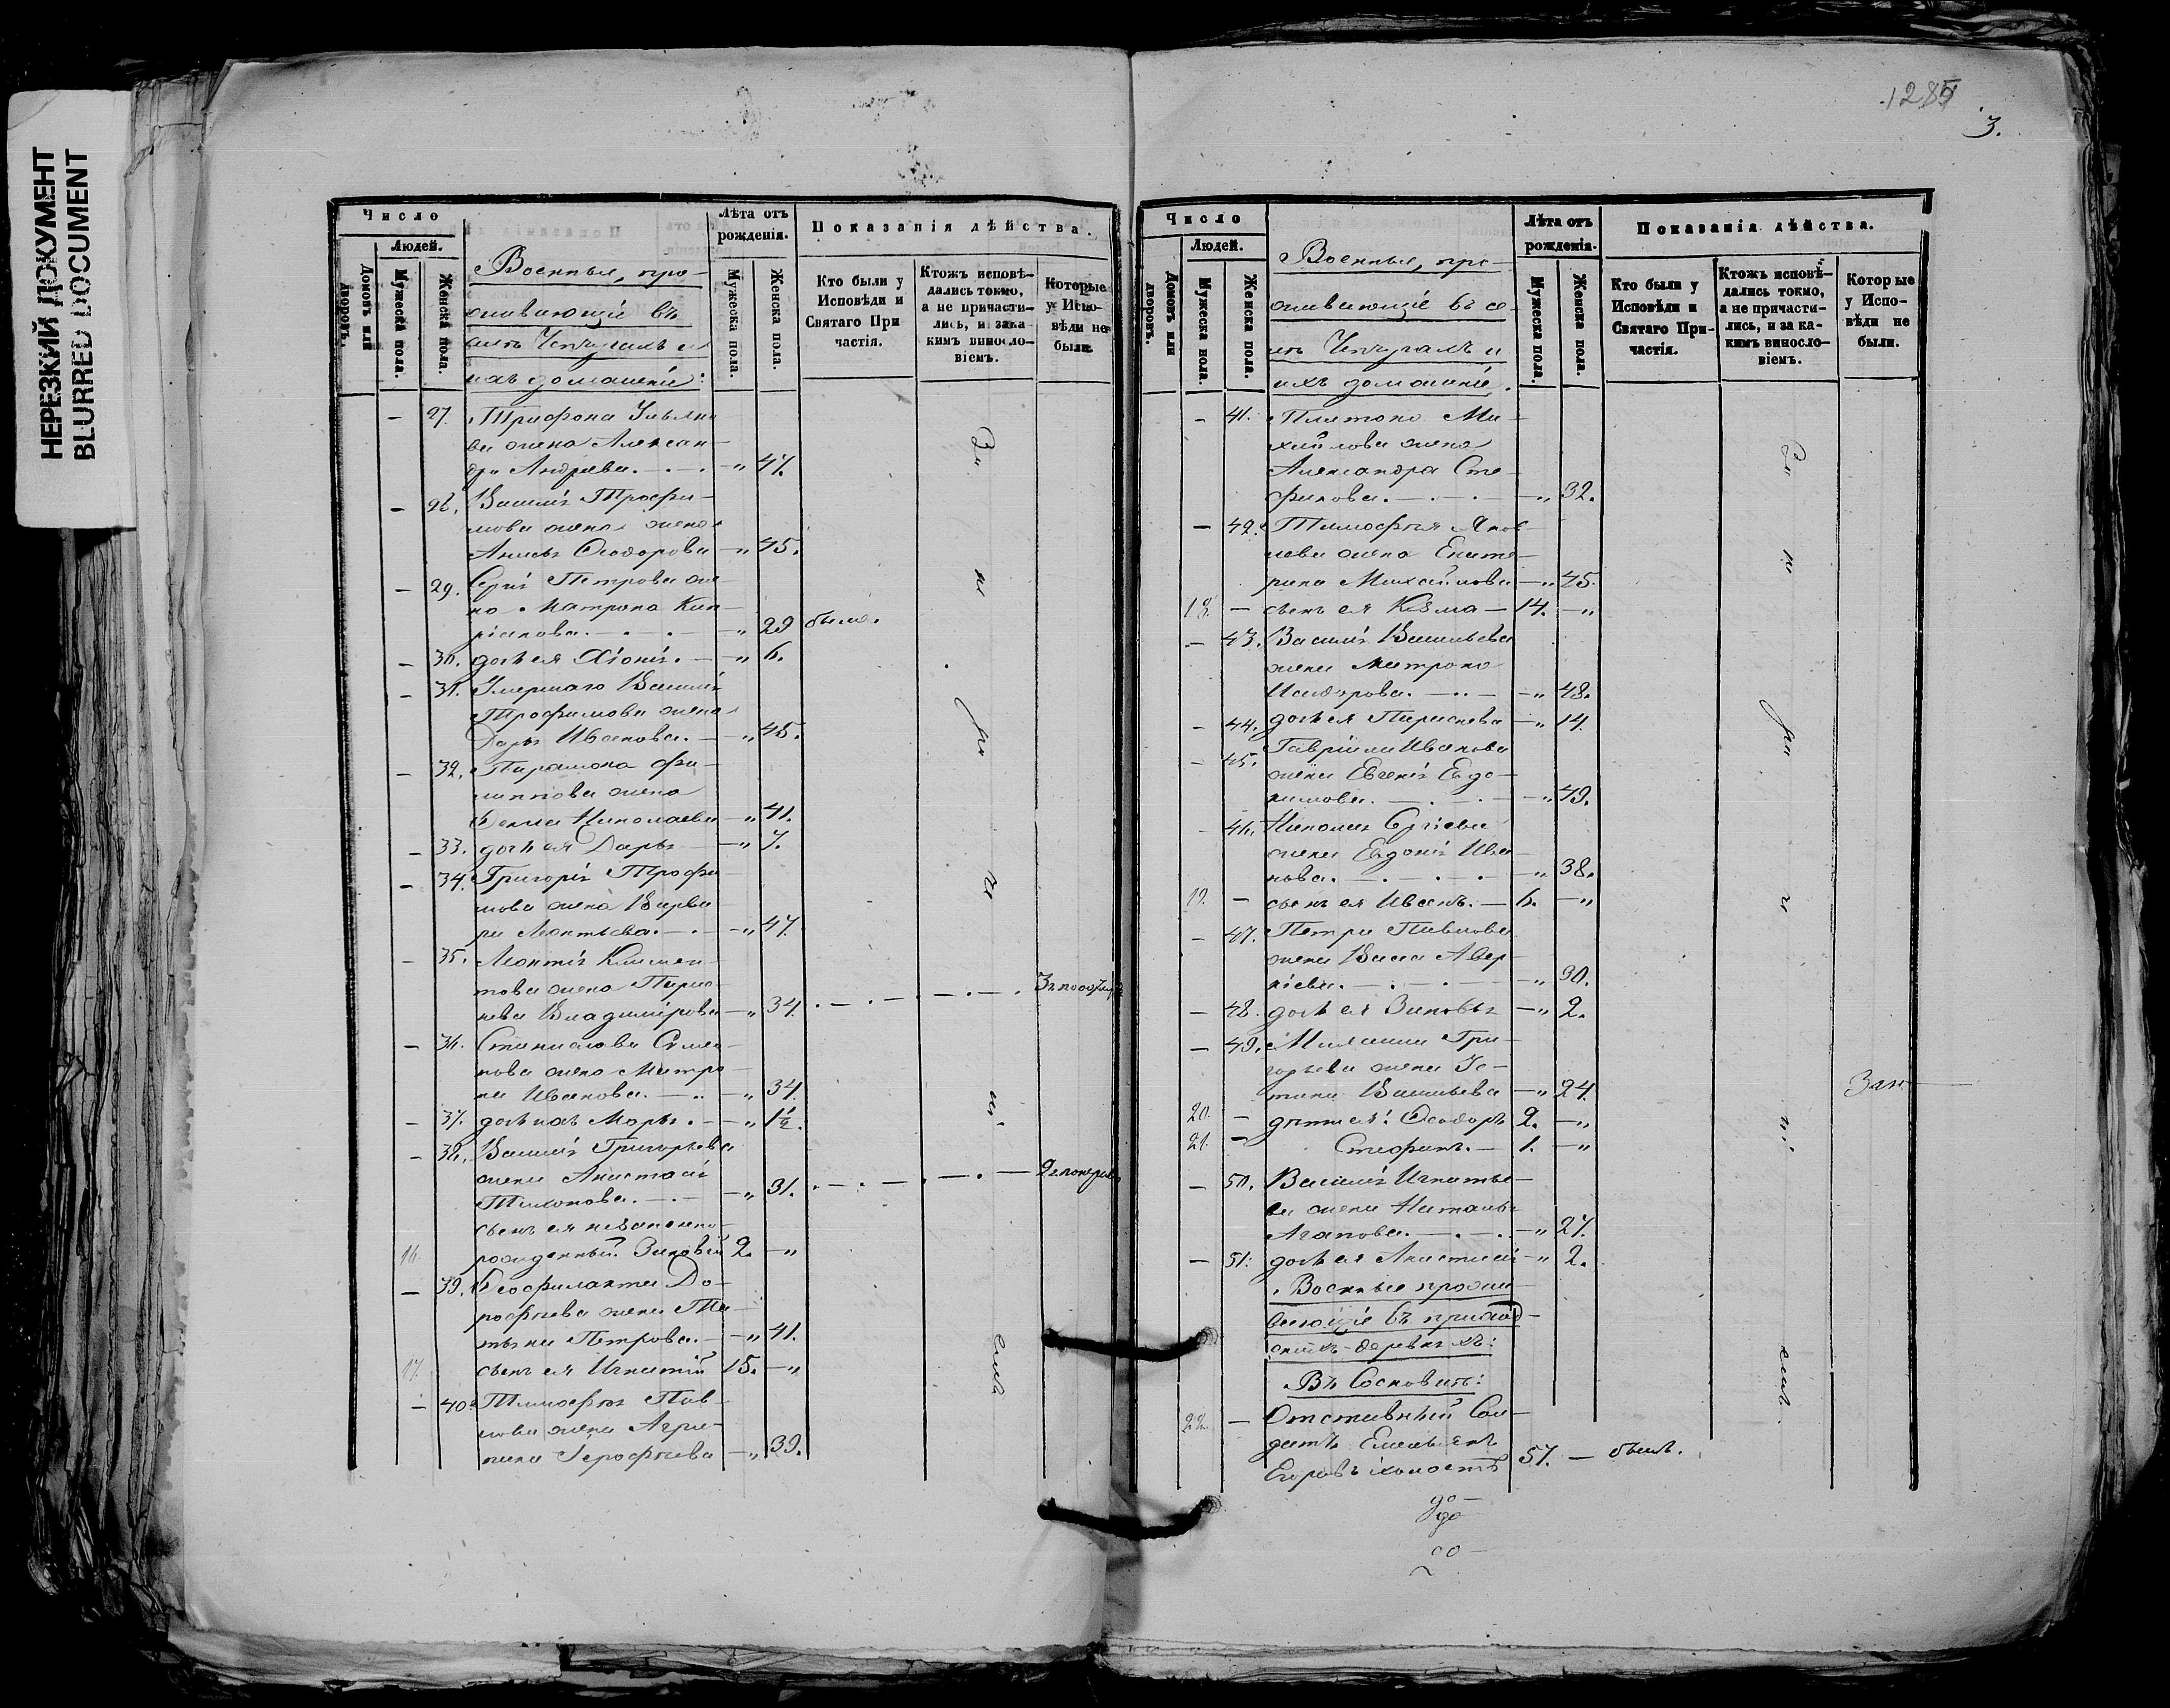 НЕРЕЗКИЙ ДОКУМЕНТ
BLURRED DOCUMENT
Число
Людей.
Домовъ или дворовъ.
Мужеска пола.
Женска пола.
Военныя, про-
живающіе въ
селѣ
ихъ домашніе:
Лѣта отъ рожденія.
Мужеска пола.
Женска пола.
Показанія дѣйства.
Кто были у Исповѣди и Святаго При частія.
Ктожъ исповѣ-дались токмо, а не причасти-лись, и зака кимъ винословіемъ.
Которые у Испо-вѣди не были.
— 27. Трифона Ульяно
ва жена Алексан-
дра Андреева. — " 47.
— 28. Василія Трофи-
мова жена жена
Анисья Ѳеодорова — " 45.
— 29. Сергія Петрова же-
на Матрона Кип-
ріанова. — " 29 была.
— 30. дочь ея Хіонія. — " 6.
— 31. Умершаго Василія
Трофимова жена
Дарья Иванова. — " 45.
— 32. Парамона Фи-
липпова жена
Ѳекла Николаева — " 41.
— 33. дочь ея Дарья — " 7.
— 34. Григорія Трофи
мова жена Варва
ра Леонтьева. — " 47.
— 35. Леонтія Климен-
това жена Парас
кева Владимірова — " 34.
— 36. Станислава Семе-
нова жена Матро
на Иванова. — " 34.
— 37. дочь ихъ Марья. — " 1½.
— 38. Василія Григорьева
жена Анастасія
Тихонова. — " 31.
сынъ ея незаконно-
16. рожденный Зиновій 2. — "
— 39. Ѳеофилакта До-
рофѣева жена Та-
тьяна Петрова. — " 41.
17. сынъ ея Игнатій 15. — "
— 40. Тимофѣя Пав-
лова жена Агри-
пина Іерофѣева — " 39.
3.
Число
Людей.
Домовъ или дворовъ.
Мужеска пола.
Женска пола.
Военныя, про-
живающіе въ се-
лѣ
ихъ домашніе.
Лѣта отъ рожденія.
Мужеска пола.
Женска пола.
Показанія дѣйства.
Кто были у Исповѣди и Святаго При-частія.
Ктожъ исповѣ-дались токмо, а не причасти-лись, и за ка-кимъ винословіемъ.
Которые у Испо-вѣди не были.
— 41. Платона Ми-
хайлова жена
Александра Сте-
фанова. — " 32.
— 42. Тимофѣя Яков
лева жена Екате-
рина Михайлова — " 45.
18. — сынъ ея Козма — 14. — "
— 43. Василія Васильева
жена Матрона
Исидорова. — " 48.
— 44. дочь ея Параскева — " 14.
— 45. Гавріила Иванова
жена Евгенія Евдо-
кимова. — " 49.
— 46. Николая Сергіева
жена Евдокія Ива-
нова. — " 38.
19. — сынъ ея Иванъ. — 6. — "
— 47. Петра Павлова
жена Васса Авер-
кіева. — " 30.
— 48. дочь ея Зиновья — " 2.
— 49. Михаила Гри-
горьева жена Ус-
тина Васильева — " 24.
20. — дѣти ея: Ѳеодоръ 2. — "
21. — Стефанъ. — 1. — "
— 50. Василія Игнатье-
ва жена Наталья
Агапова. — " 27.
— 51. дочь ея Анастасія — " 2.
Военные прожи-
вающіе въ приход-
скихъ деревняхъ:
Въ Сосновкѣ:
22. — Отставный Сол-
датъ Емельянъ
Егоровъ холостъ 57. — былъ.